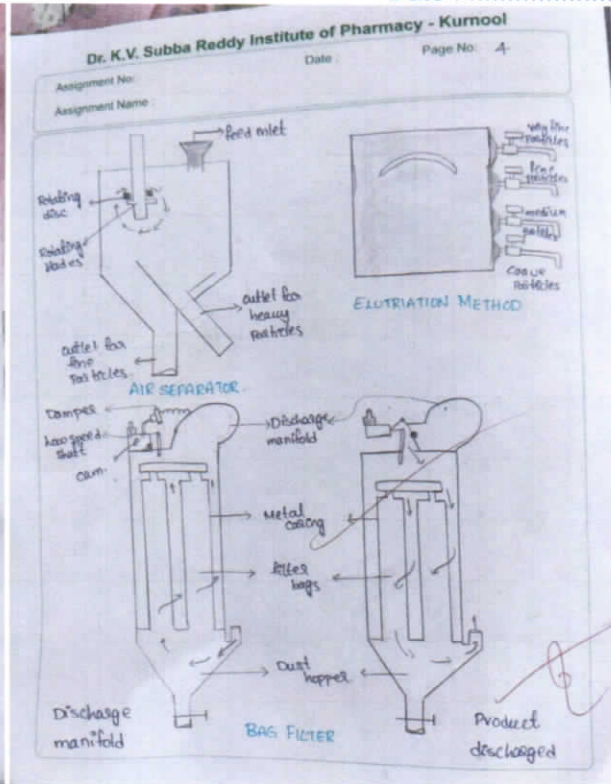 Dr. K.V. Subba Reddy Institute of Pharmacy - Kurnool
Assignment No:
Date :
Page No: 4
Assignment Name :
feed inlet
Rotating
disc
Rotating
blades
outlet for
heavy
particles
outlet for
fine
particles
AIR SEPARATOR
very fine
particles
fine
particles
medium
particles
Coarse
Particles
ELUTRIATION METHOD
Damper
Low speed
shaft
cam
Discharge
manifold
Metal
casing
filter
bags
Dust
hopper
Discharge
manifold
BAG FILTER
Product
discharged